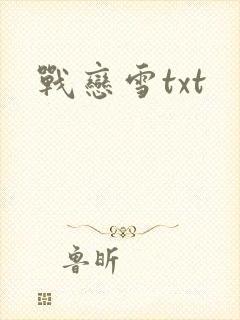 戰戀雪txt
魯昕